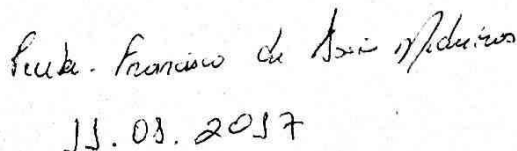 Francisco de Assis Medeiros
11.01.2017